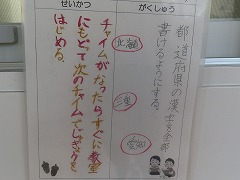 がくしゅう
都道府県の漢字を全部
書けるようにする。
北海道
三重
愛知
せいかつ
チャイムがなったらすぐに教室
にもどって次のチャイムでじゅぎょうを
はじめる。